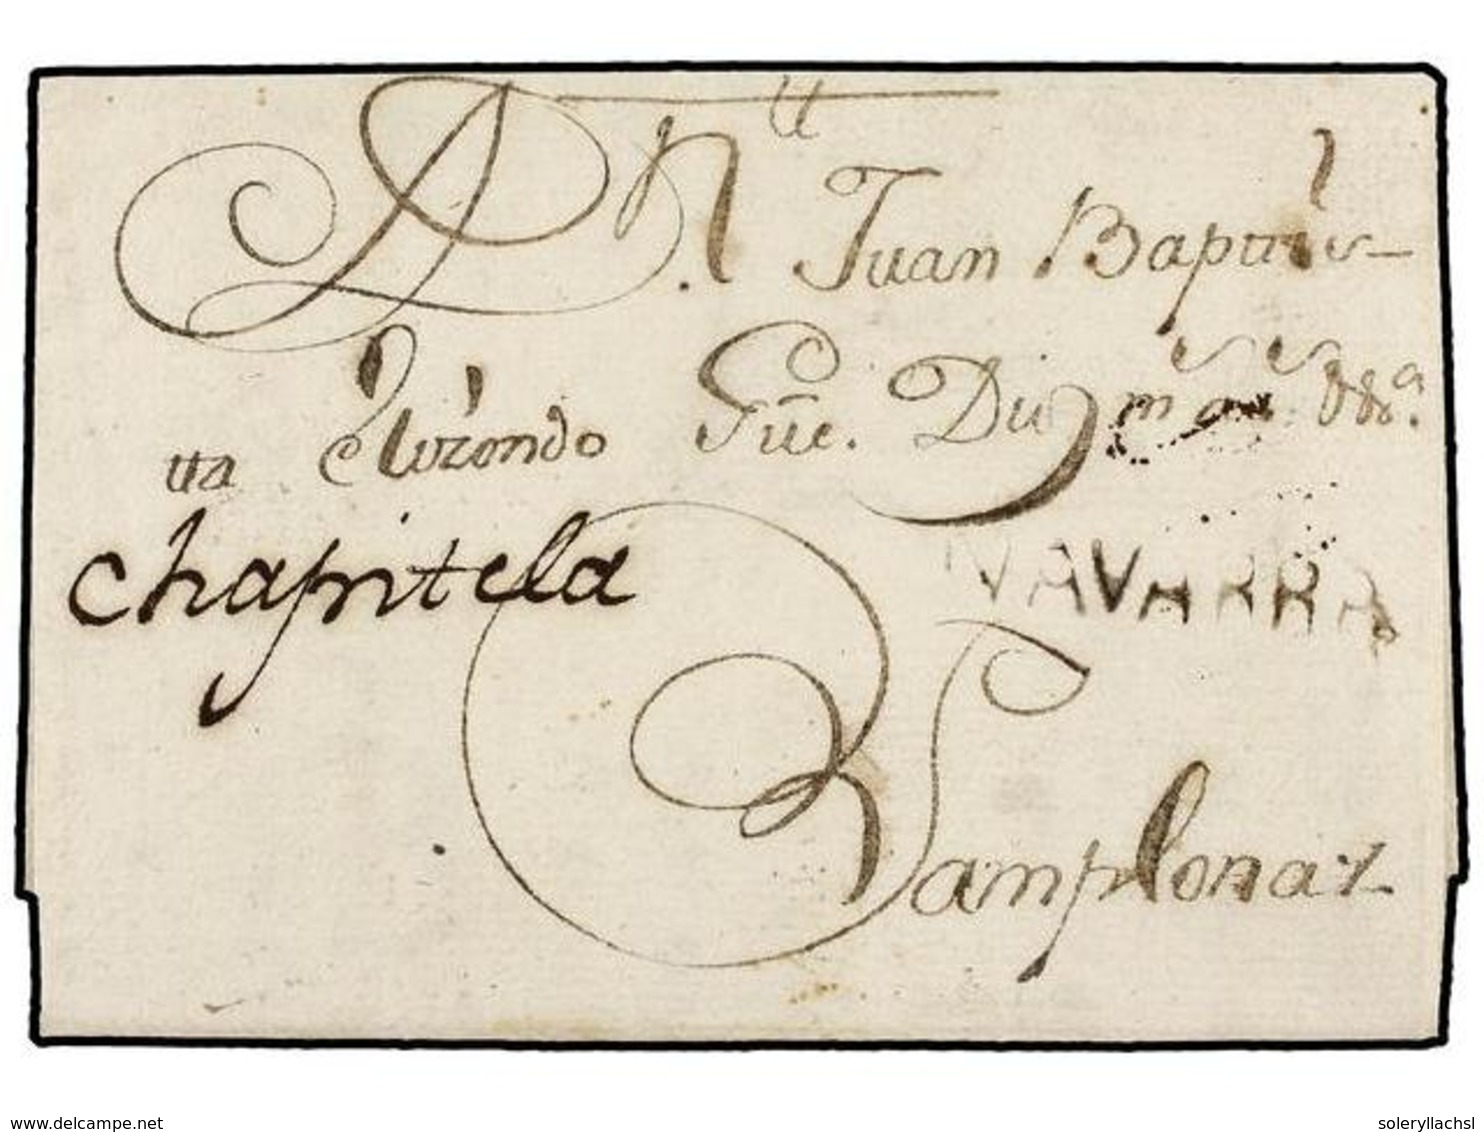 A Dn
Juan Baptis-
ta Elizondo Gūe. Dios ms as
chapitela
NAVARRA
Pamplona
delcampe.net
soleryllachs1